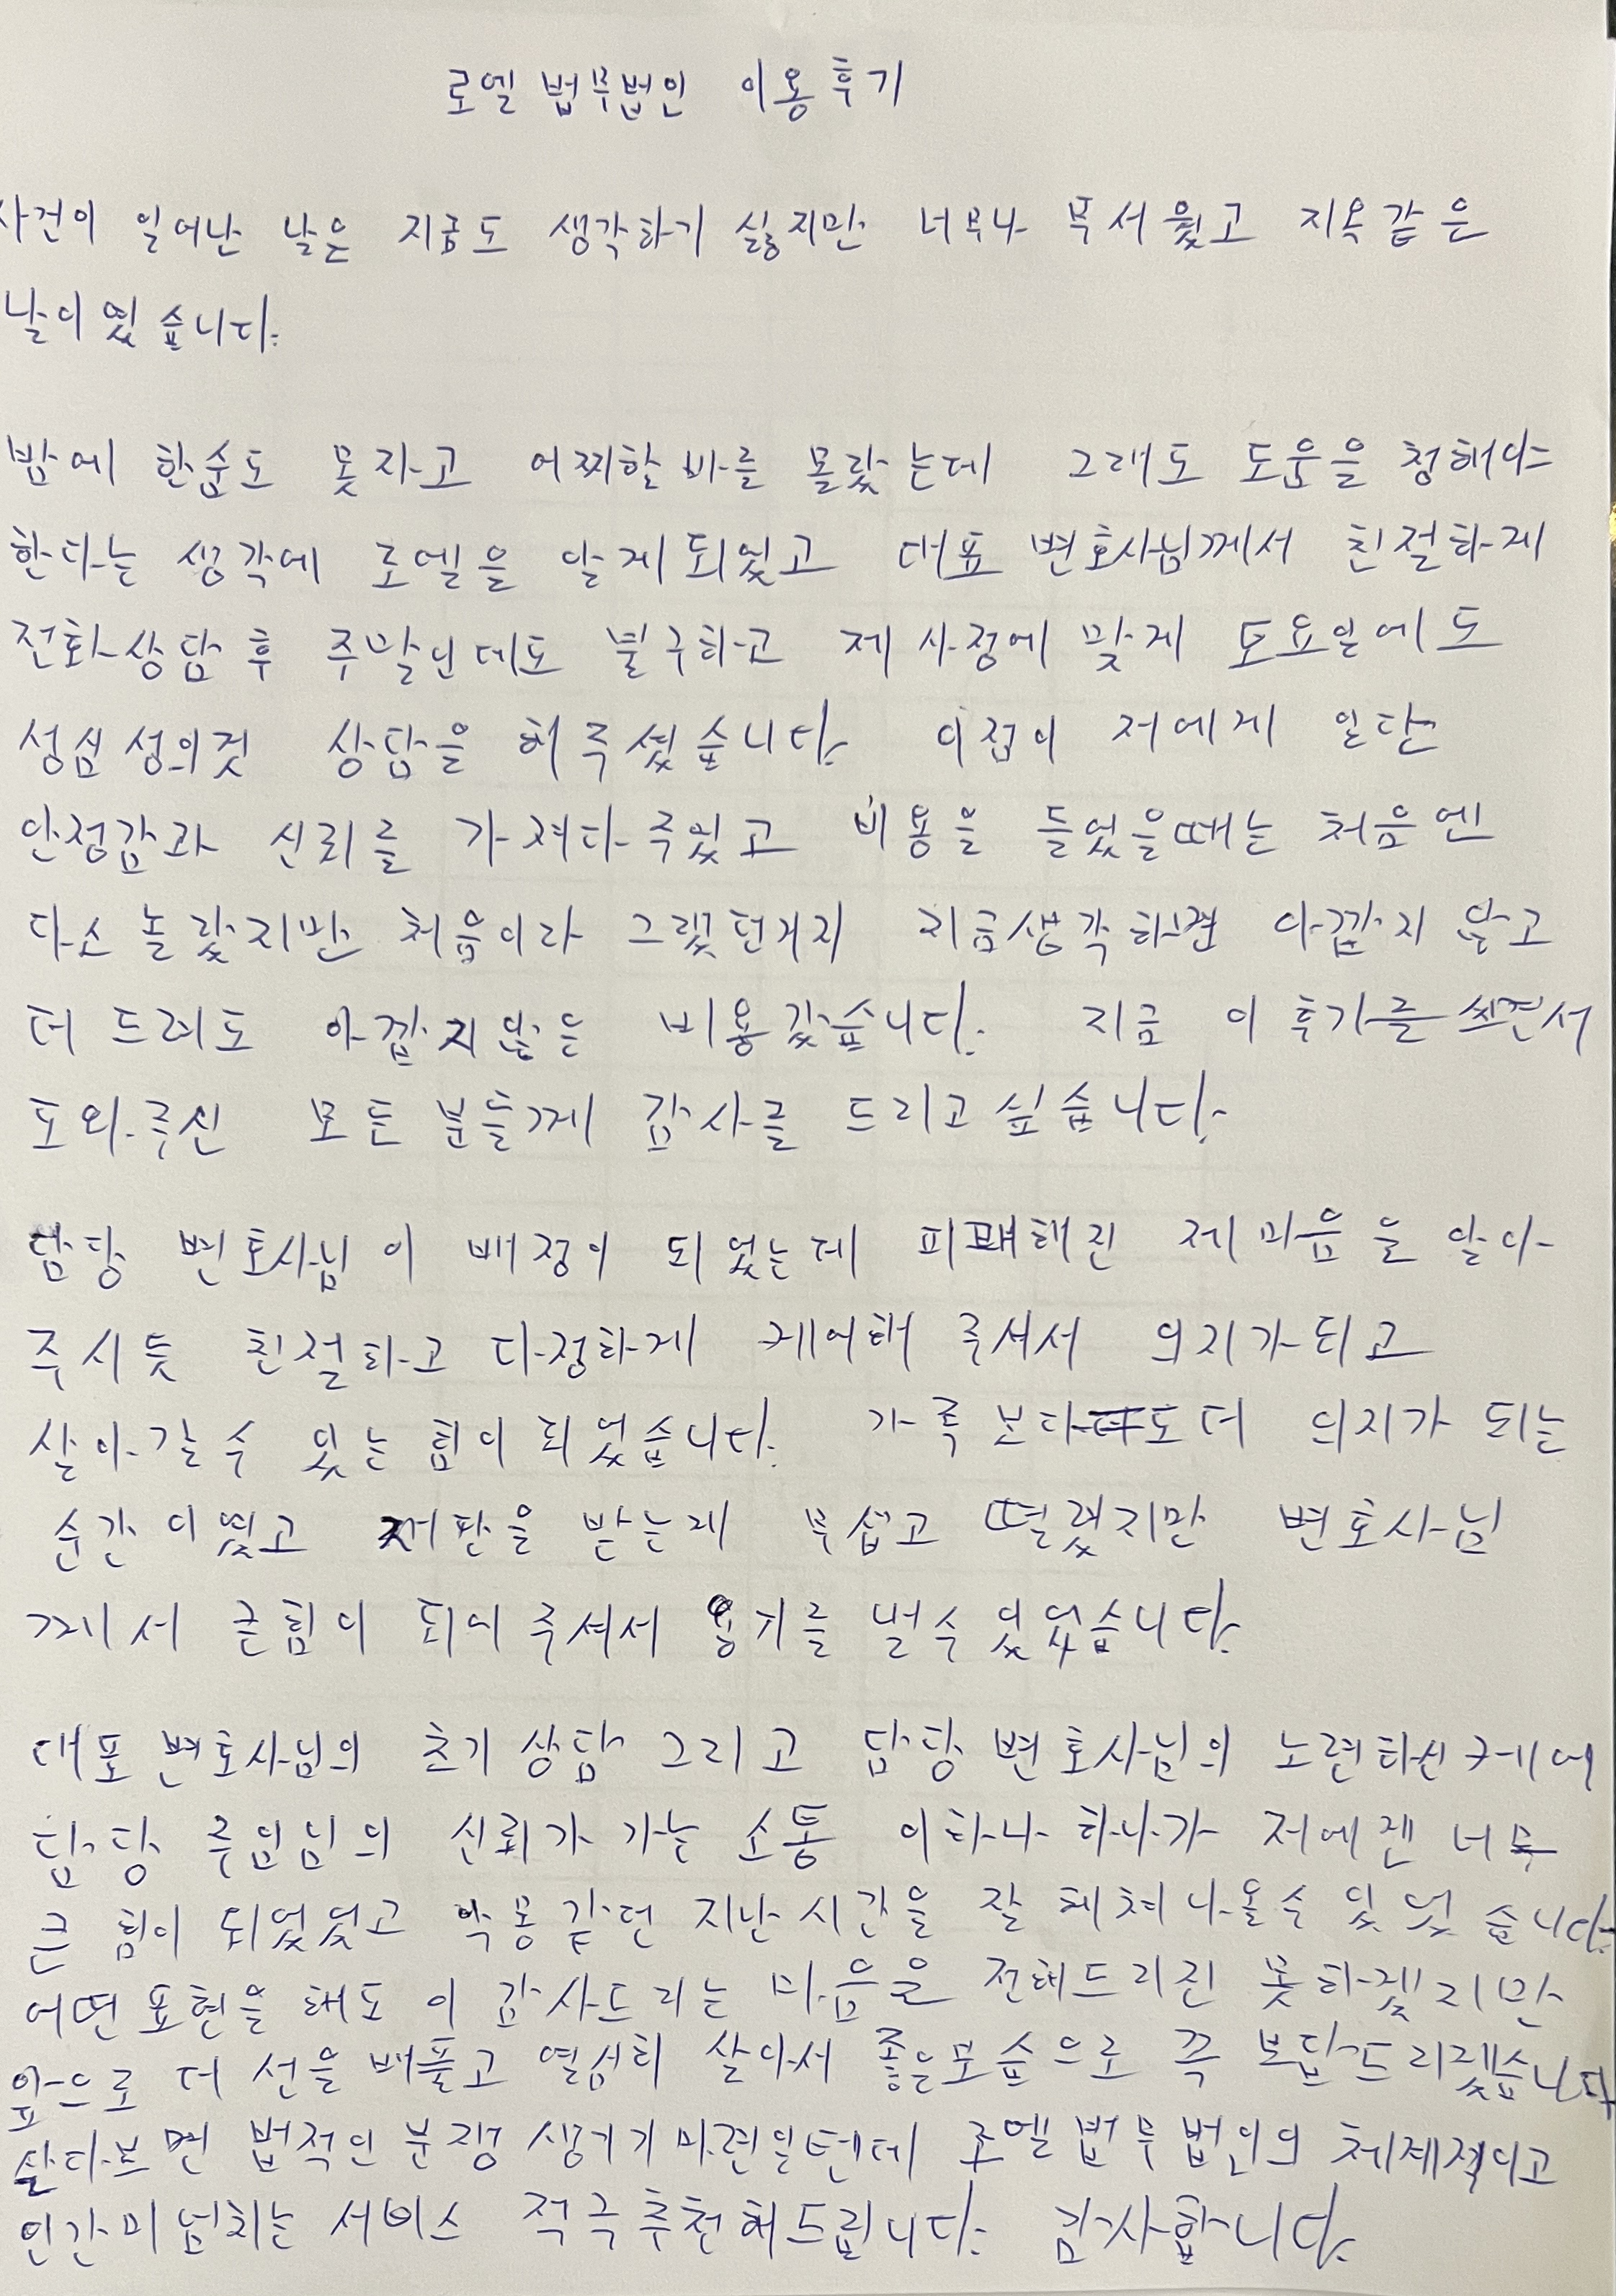 로엘 법무법인 이용후기
사건이 일어난 날은 지금도 생각하기 싫지만 너무나 무서웠고 지옥같은
날이었습니다.
밤에 한숨도 못자고 어찌할 바를 몰랐는데 그래도 도움을 청해야
한다는 생각에 로엘을 알게되었고 대표 변호사님께서 친절하게
전화상담 후 주말인데도 불구하고 제 사정에 맞게 토요일에도
성심성의껏 상담을 해주셨습니다. 이점이 저에게 일단
안정감과 신뢰를 가져다주었고 비용을 들었을때는 처음엔
다소 놀랐지만 처음이라 그랬던거지 지금생각하면 아깝지 않고
더 드려도 아깝지않은 비용같습니다. 지금 이 후기를 쓰면서
도와주신 모든 분들께 감사를 드리고싶습니다.
담당 변호사님이 배정이 되었는데 피폐해진 제 마음을 알아
주시듯 친절하고 다정하게 케어해 주셔서 의지가되고
살아갈수 있는 힘이 되었습니다. 가족보다도 더 의지가 되는
순간이였고 재판을 받는게 무섭고 떨렸지만 변호사님
께서 큰힘이 되어주셔서 용기를 낼수있었습니다.
대표변호사님의 초기상담 그리고 담당 변호사님의 노련하신케어
담당 주임님의 신뢰가 가는 소통 이하나 하나가 저에겐 너무
큰 힘이 되었었고 악몽같던 지난시간을 잘 헤쳐나올수 있었습니다.
어떤표현을 해도 이 감사드리는 마음을 전해드리진 못하겠지만
앞으로 더 선을 베풀고 열심히 살아서 좋은모습으로 꼭 보답드리겠습니다
살다보면 법적인 분쟁 생기기마련일텐데 로엘법무법인의 체계적이고
인간미넘치는 서비스 적극추천해드립니다. 감사합니다.